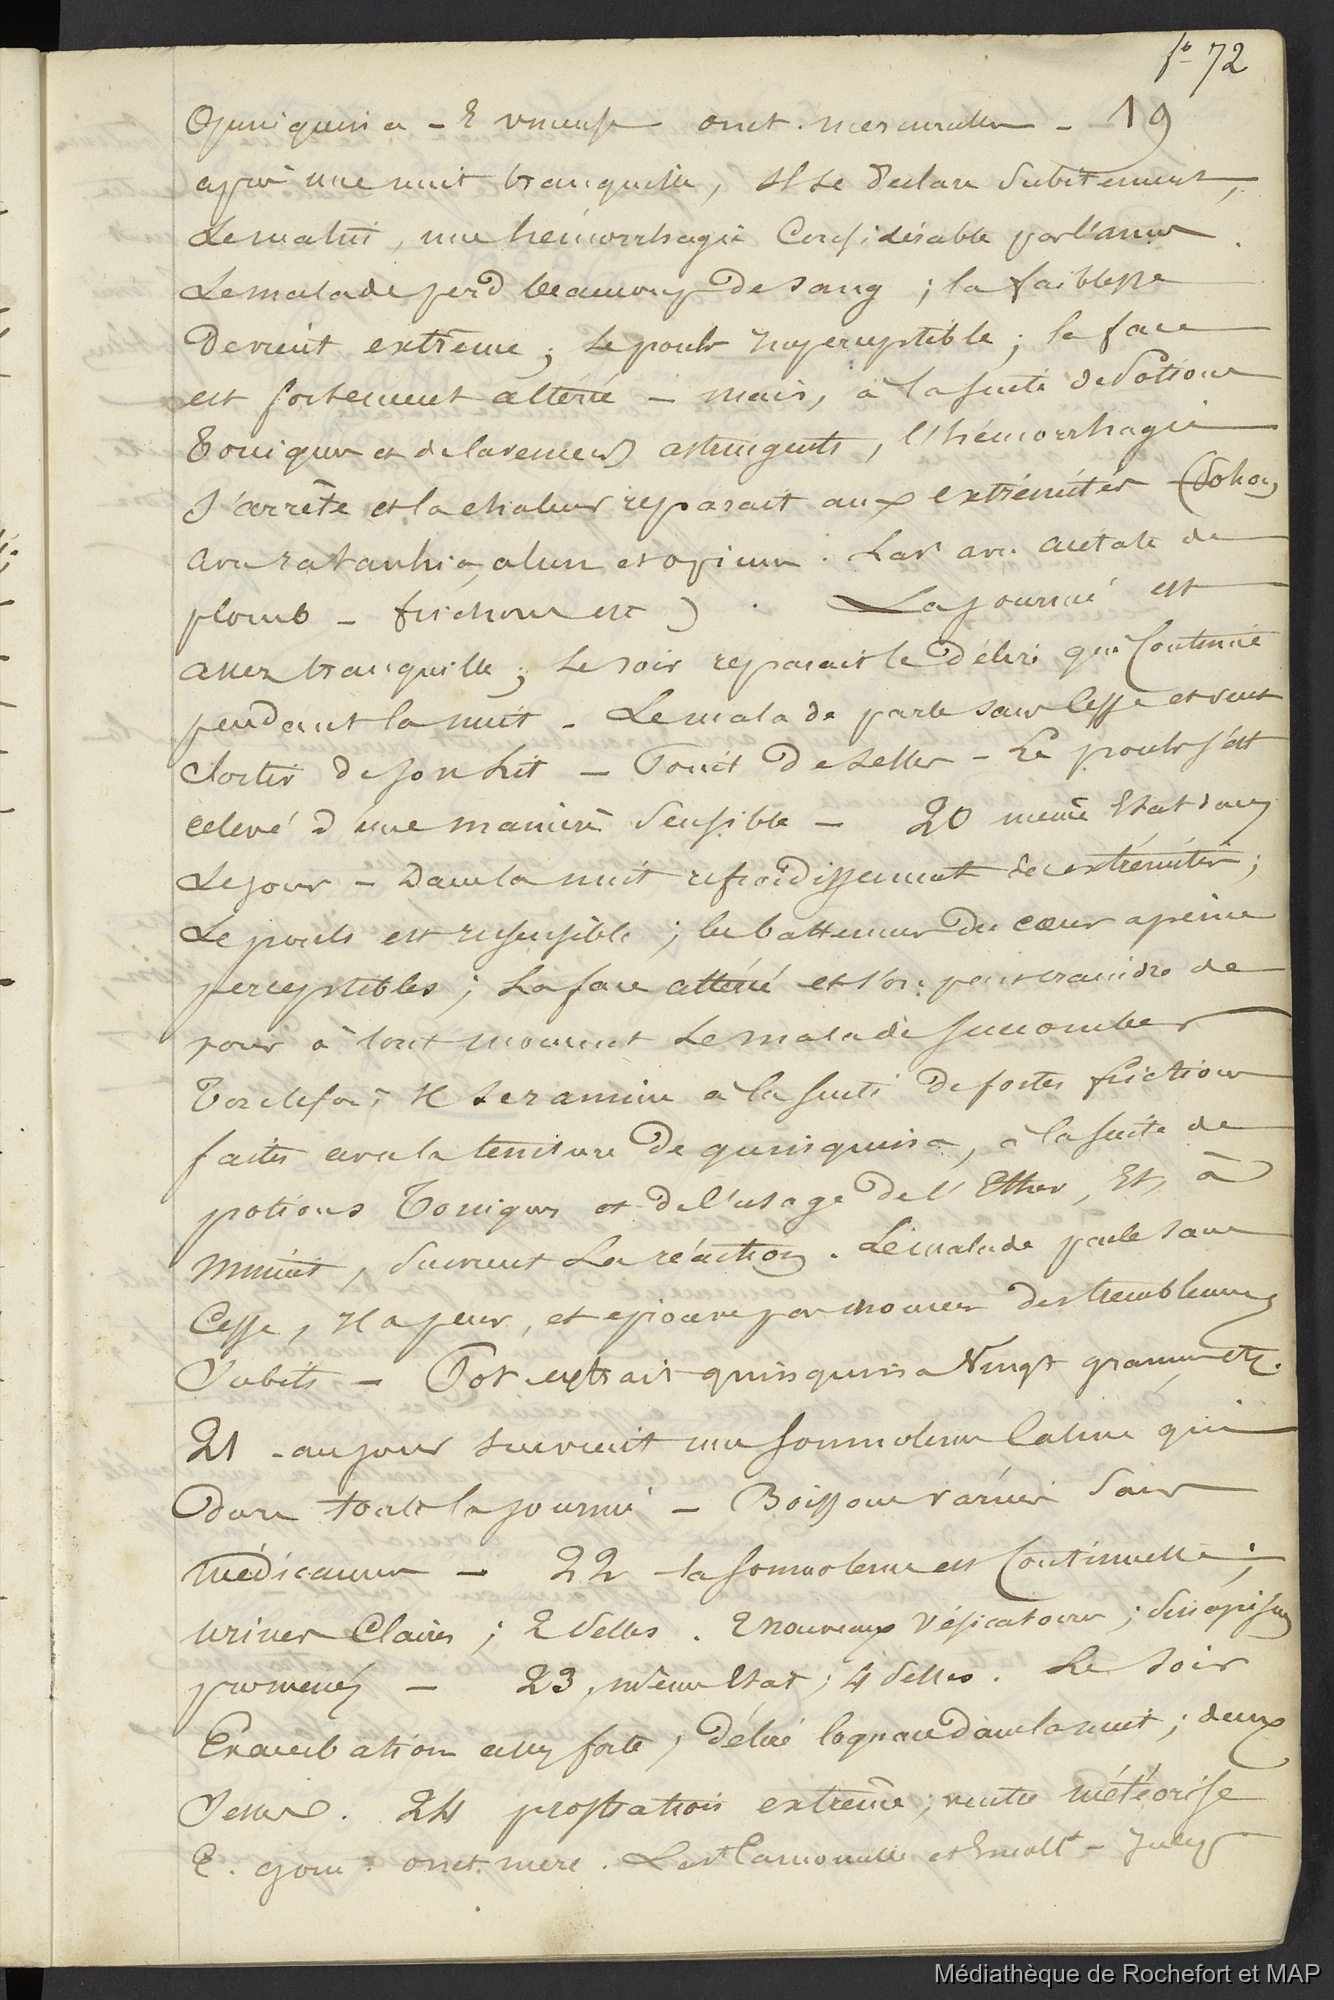 fo 72
quinquina - E vineuse onct. mercurielle - 19
après une nuit tranquille, il se declare subitement,
Le matin, une hémorrhagie Considérable par l'anus.
Le malade perd beaucoup De sang ; la faiblesse
Devient extrême ; Le pouls Imperceptible ; la face
est fortement altérée - mais, à la suite de Potions
Toniques et de lavements astringents, l'hémorrhagie
s'arrête et la chaleur reparait aux extrémités (Potion
avec ratanhia, alun et opium. Lavt avec acétate de
plomb - frictions etc). La journée est
assez tranquille ; Le soir reparait le Délire qui Continue
pendant la nuit - Le malade parle sans Cesse et veut
sortir de son Lit - Point De Selles - Le pouls s'est
relevé d'une manière sensible - 20 même Etat dans
Le jour - Dans la nuit refroidissement des extrémités ;
Le pouls est insensible ; les battemens du cœur apeine
perceptibles ; La face altérée et l'on peut craindre de
voir à tout moment Le malade succomber
Toutefois Il se ranime à la suite De fortes frictions
faites avec la teinture De quinquina, à la suite de
potions Toniques et De l'usage De l'Ether, Et, à
minuit, survient La réaction. Le malade parle sans
Cesse, Il a peur, et eprouve par momens des tremblemens
Subits - Pot extrait quinquina Vingt grammes etc.
21 - au jour survient une somnolence Calme qui
Dure toute la journée - Boissons variées Sans
médicamens - 22 la somnolence est Continuelle ;
urines Claires ; 2 Selles. 2 nouveaux Vésicatoires ; Sinapismes
promenés - 23, même Etat ; 4 Selles. Le soir
Exacerbation assez forte ; Délire loquace Dans la nuit ; deux
Selles. 24 prostration extrême ; ventre météorisé
E. gom. onct. merc. Lavt Camomille et